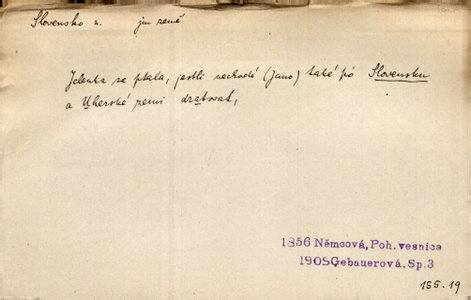 Slovensko n. jm země
Jelenka se ptala, jestli nechodí (Jano) také po Slovensku
a Uherské zemi dratovat,
1856 Němcová, Poh. vesnice
1905 Gebauerová, Sp. 3
155.19